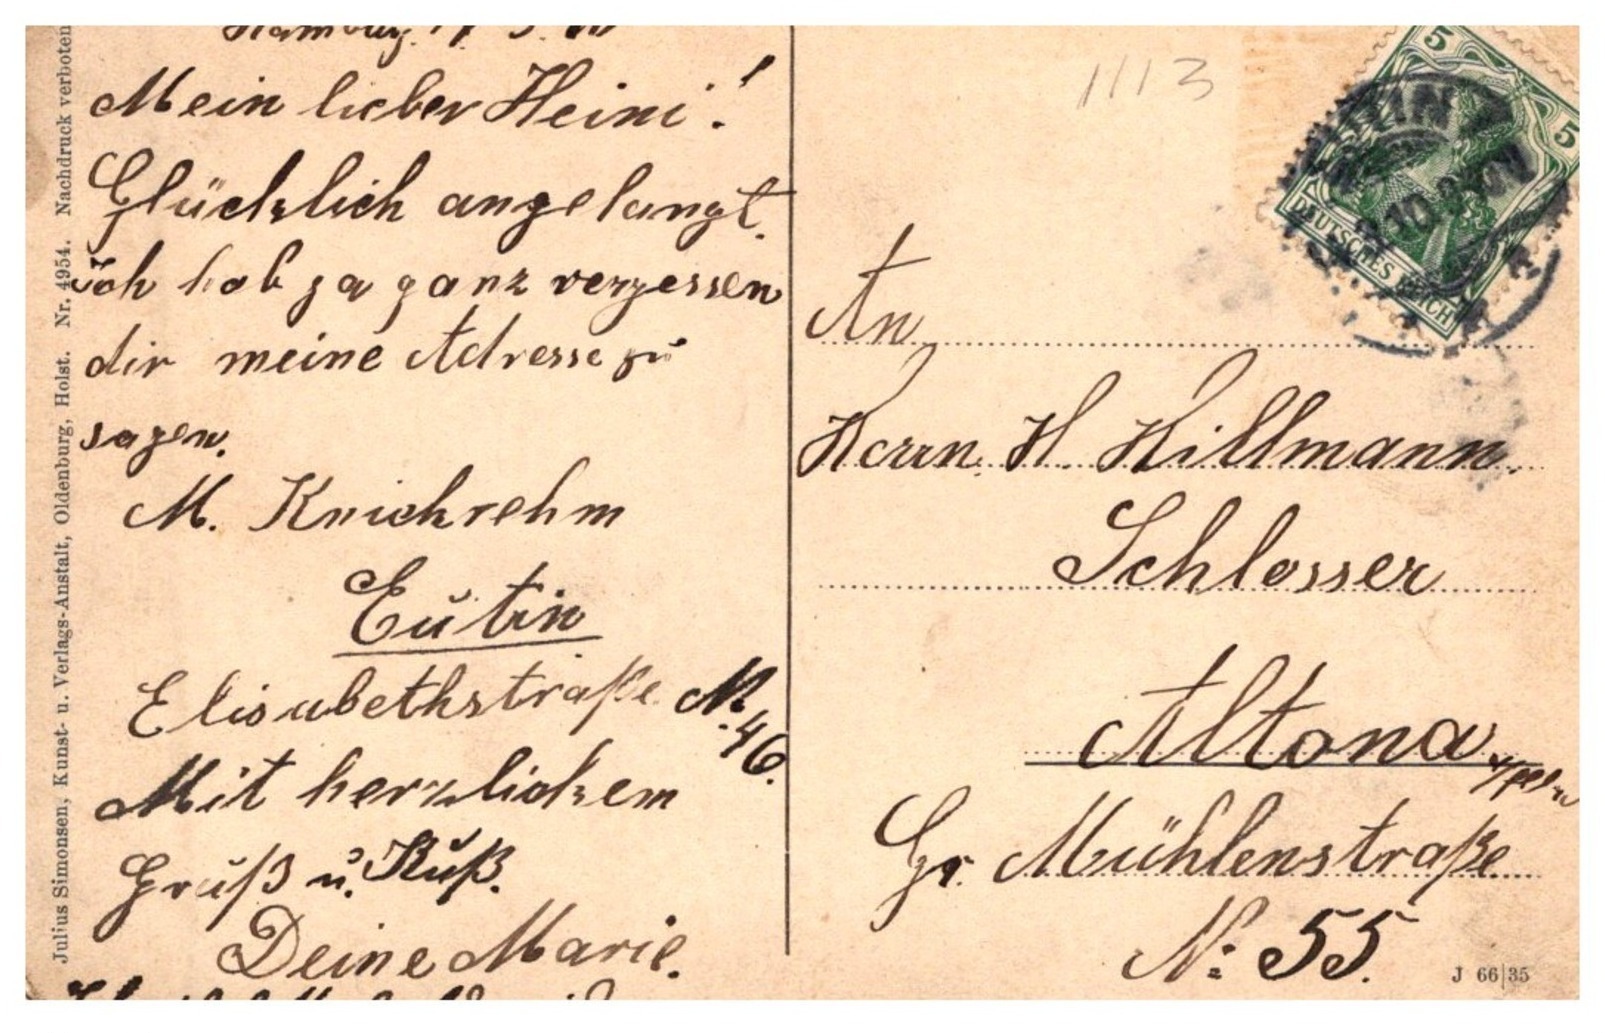 Hamburg
Mein lieber Heini!
Glücklich angelangt.
ich hab ja ganz vergessen
dir meine Adresse zu
sagen.
M. Knickrehm
Eutin
Elisabethstraße N
46.
Mit herzlichem
Gruß u. Kuß.
Deine Marie.
An
Herrn H. Hillmann.
Schlosser
Altona
Gr. Mühlenstraße
No: 55.
1113
5
5
DEUTSCHES REICH
J 66|35
Julius Simonsen, Kunst- u. Verlags-Anstalt, Oldenburg, Holst. Nr. 4954. Nachdruck verboten